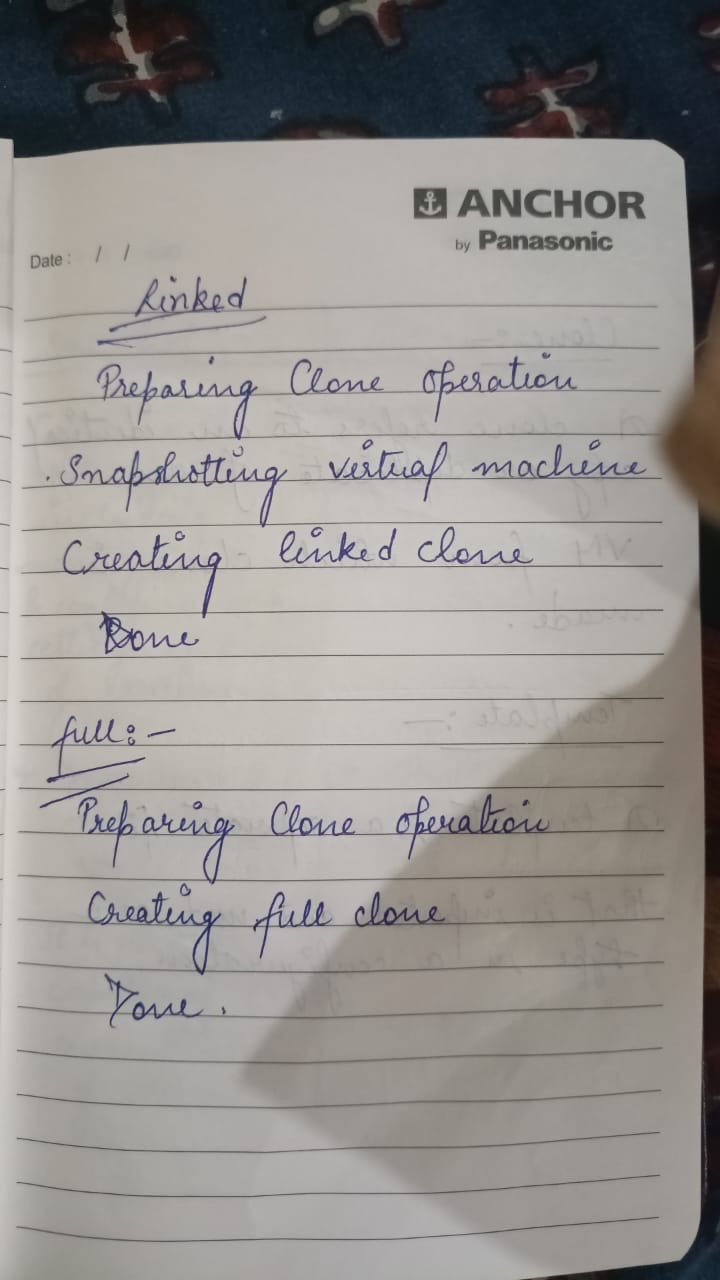 ANCHOR
by Panasonic
Date : / /
Linked
Preparing Clone operation
. Snapshotting virtual machine
Creating linked clone
Done
full:-
Preparing Clone operation
Creating full clone
Done.